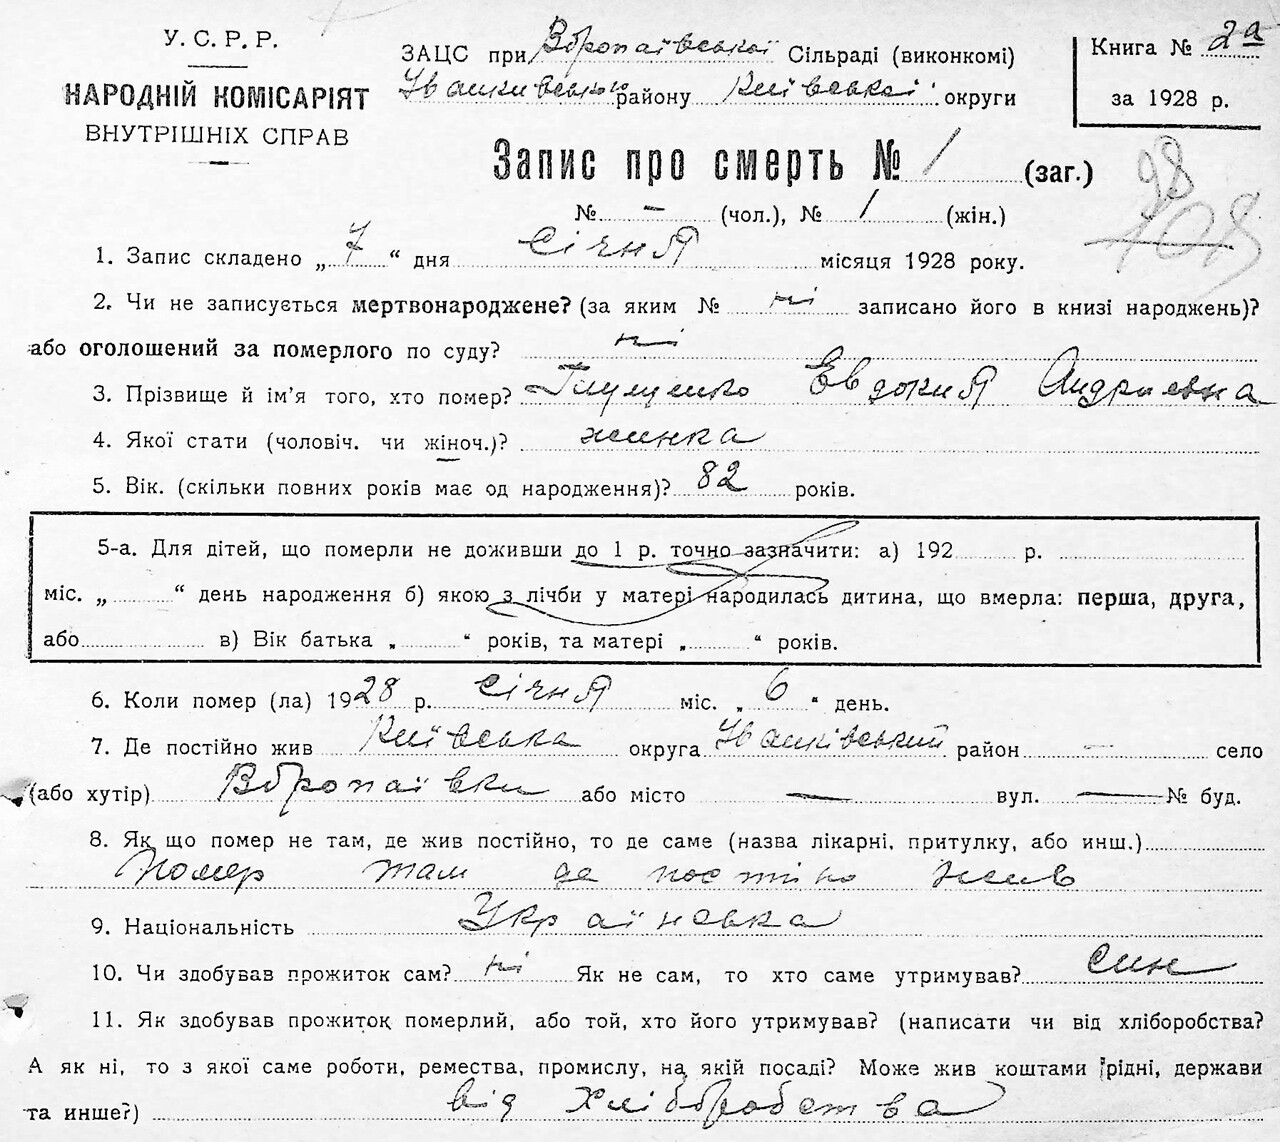 У. С. Р. Р.
НАРОДНІЙ КОМІСАРІЯТ
ВНУТРІШНІХ СПРАВ
ЗАЦС при Воропаївської Сільраді (виконкомі)
Іванківського району Київської округи
Книга № 2а
за 1928 р.
Запис про смерть № 1 (заг.)
98
108
№ — (чол.), № 1 (жін.)
1. Запис складено „ 7 “ дня січня місяця 1928 року.
2. Чи не записується мертвонароджене? (за яким № ні записано його в книзі народжень)?
або оголошений за померлого по суду? ні
3. Прізвище й ім'я того, хто помер? Глущенко Евдокия Андриевна
4. Якої стати (чоловіч. чи жіноч.)? жинка
5. Вік. (скільки повних років має од народження)? 82 років.
5-а. Для дітей, що померли не доживши до 1 р. точно зазначити: а) 192 р.
міс. „ “ день народження б) якою з лічби у матері народилась дитина, що вмерла: перша, друга,
або в) Вік батька „ “ років, та матері „ “ років.
6. Коли помер (ла) 1928 р. січня міс. „ 6 “ день.
7. Де постійно жив Київська округа Іванківський район — село
(або хутір) Воропаївки або місто — вул. — № буд.
8. Як що помер не там, де жив постійно, то де саме (назва лікарні, притулку, або инш.)
помер там де постіно жив
9. Національність Українська
10. Чи здобував прожиток сам? ні Як не сам, то хто саме утримував? син
11. Як здобував прожиток померлий, або той, хто його утримував? (написати чи від хліборобства?
А як ні, то з якої саме роботи, ремества, промислу, на якій посаді? Може жив коштами рідні, держави
та инше?) від Хліборобства